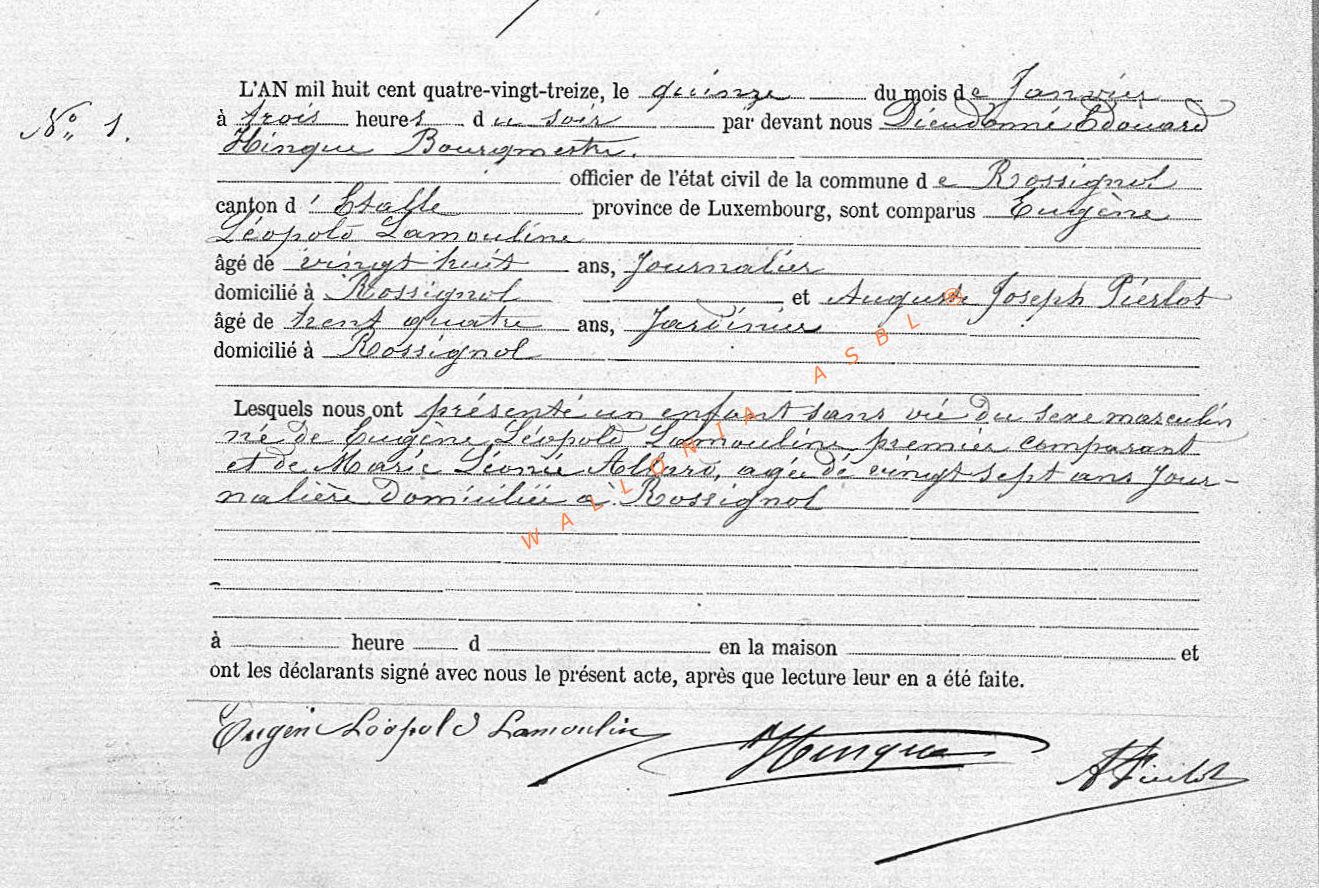 L'AN mil huit cent quatre-vingt-treize, le quinze du mois de Janvier
N° 1.
à trois heures du soir par devant nous Dieudonné Edouard
Hinque Bourgmestre.
officier de l'état civil de la commune de Rossignol
canton d'Etalle province de Luxembourg, sont comparus Eugène
Léopold Lamouline
âgé de vingt huit ans, Journalier
domicilié à Rossignol et Auguste Joseph Pierlot
âgé de trent quatre ans, Jardinier
domicilié à Rossignol
Lesquels nous ont présenté un enfant sans vie du sexe masculin
né de Eugène Léopold Lamouline premier comparant
et de Marie Léonie agée de vingt sept ans Jour-
nalière domiciliée a Rossignol
à heure d en la maison et
ont les déclarants signé avec nous le présent acte, après que lecture leur en a été faite.
Eugène Léopold Lamoulin Hinque A Pierlot
WALLONIA ASBL ®